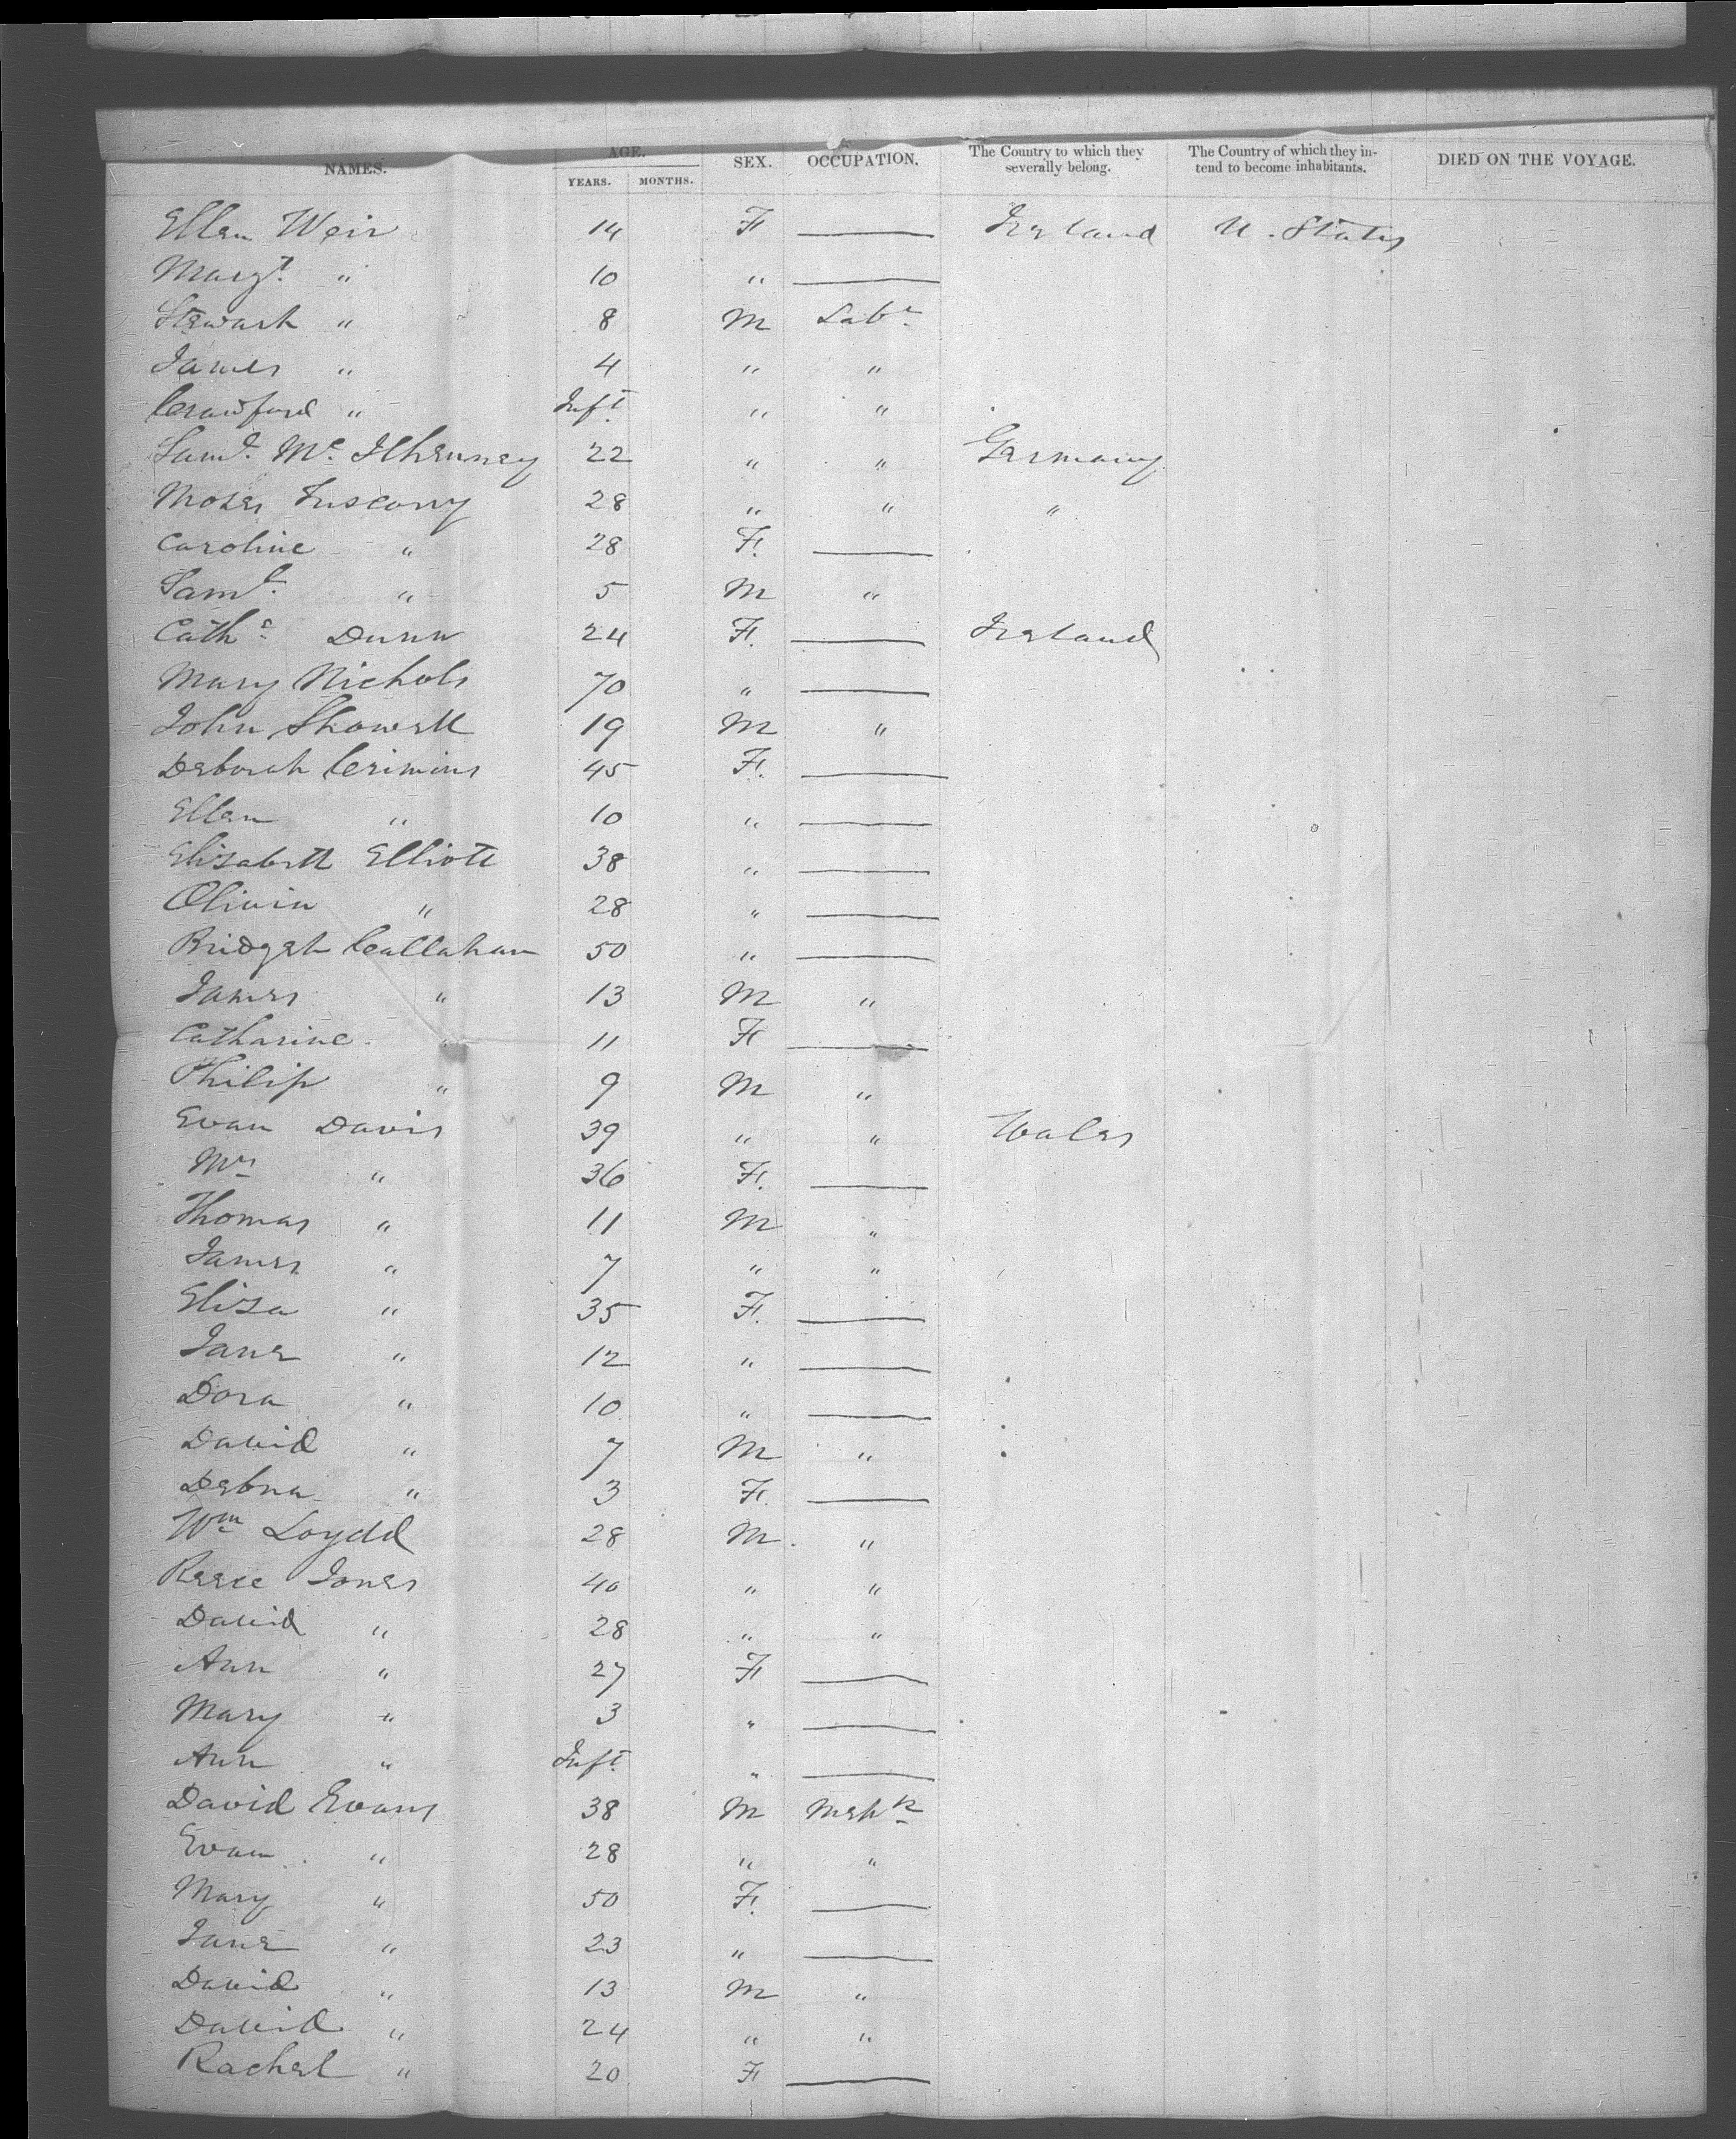 NAMES. AGE. YEARS. MONTHS. SEX. OCCUPATION. The Country to which they severally belong. The Country of which they intend to become inhabitants. DIED ON THE VOYAGE.
Ellen Weir 14 F — Ireland U. States
Margt. " 10 " —
Stewart " 8 M Labr
James " 4 " "
Crawford " Inft " "
Saml. Mc Ilhenney 22 " " Germany
Moses Tuscony 28 " " "
Caroline " 28 F. —
Saml. " 5 M "
Cathe Dunn 24 F. — Ireland
Mary Nichols 70 " —
John Showell 19 M "
Deborah Crimins 45 F. —
Ellen " 10 " —
Elizabeth Elliott 38 " —
Olivia " 28 " —
Bridget Callahan 50 " —
James " 13 M "
Catharine " 11 F —
Philip " 9 M "
Evan Davis 39 " " Wales
Mrs " 36 F. —
Thomas " 11 M "
James " 7 " "
Eliza " 35 F. —
Jane " 12 " —
Dora " 10 " —
David " 7 M "
" 3 F. —
Wm Loydd 28 M. "
Reece Jones 40 " "
David " 28 " "
Ann " 27 F —
Mary " 3 " —
Ann " Inft " —
David Evans 38 M
Evan " 28 " "
Mary " 50 F. —
Jane " 23 " —
David " 13 M "
David " 24 " "
Rachel " 20 F —